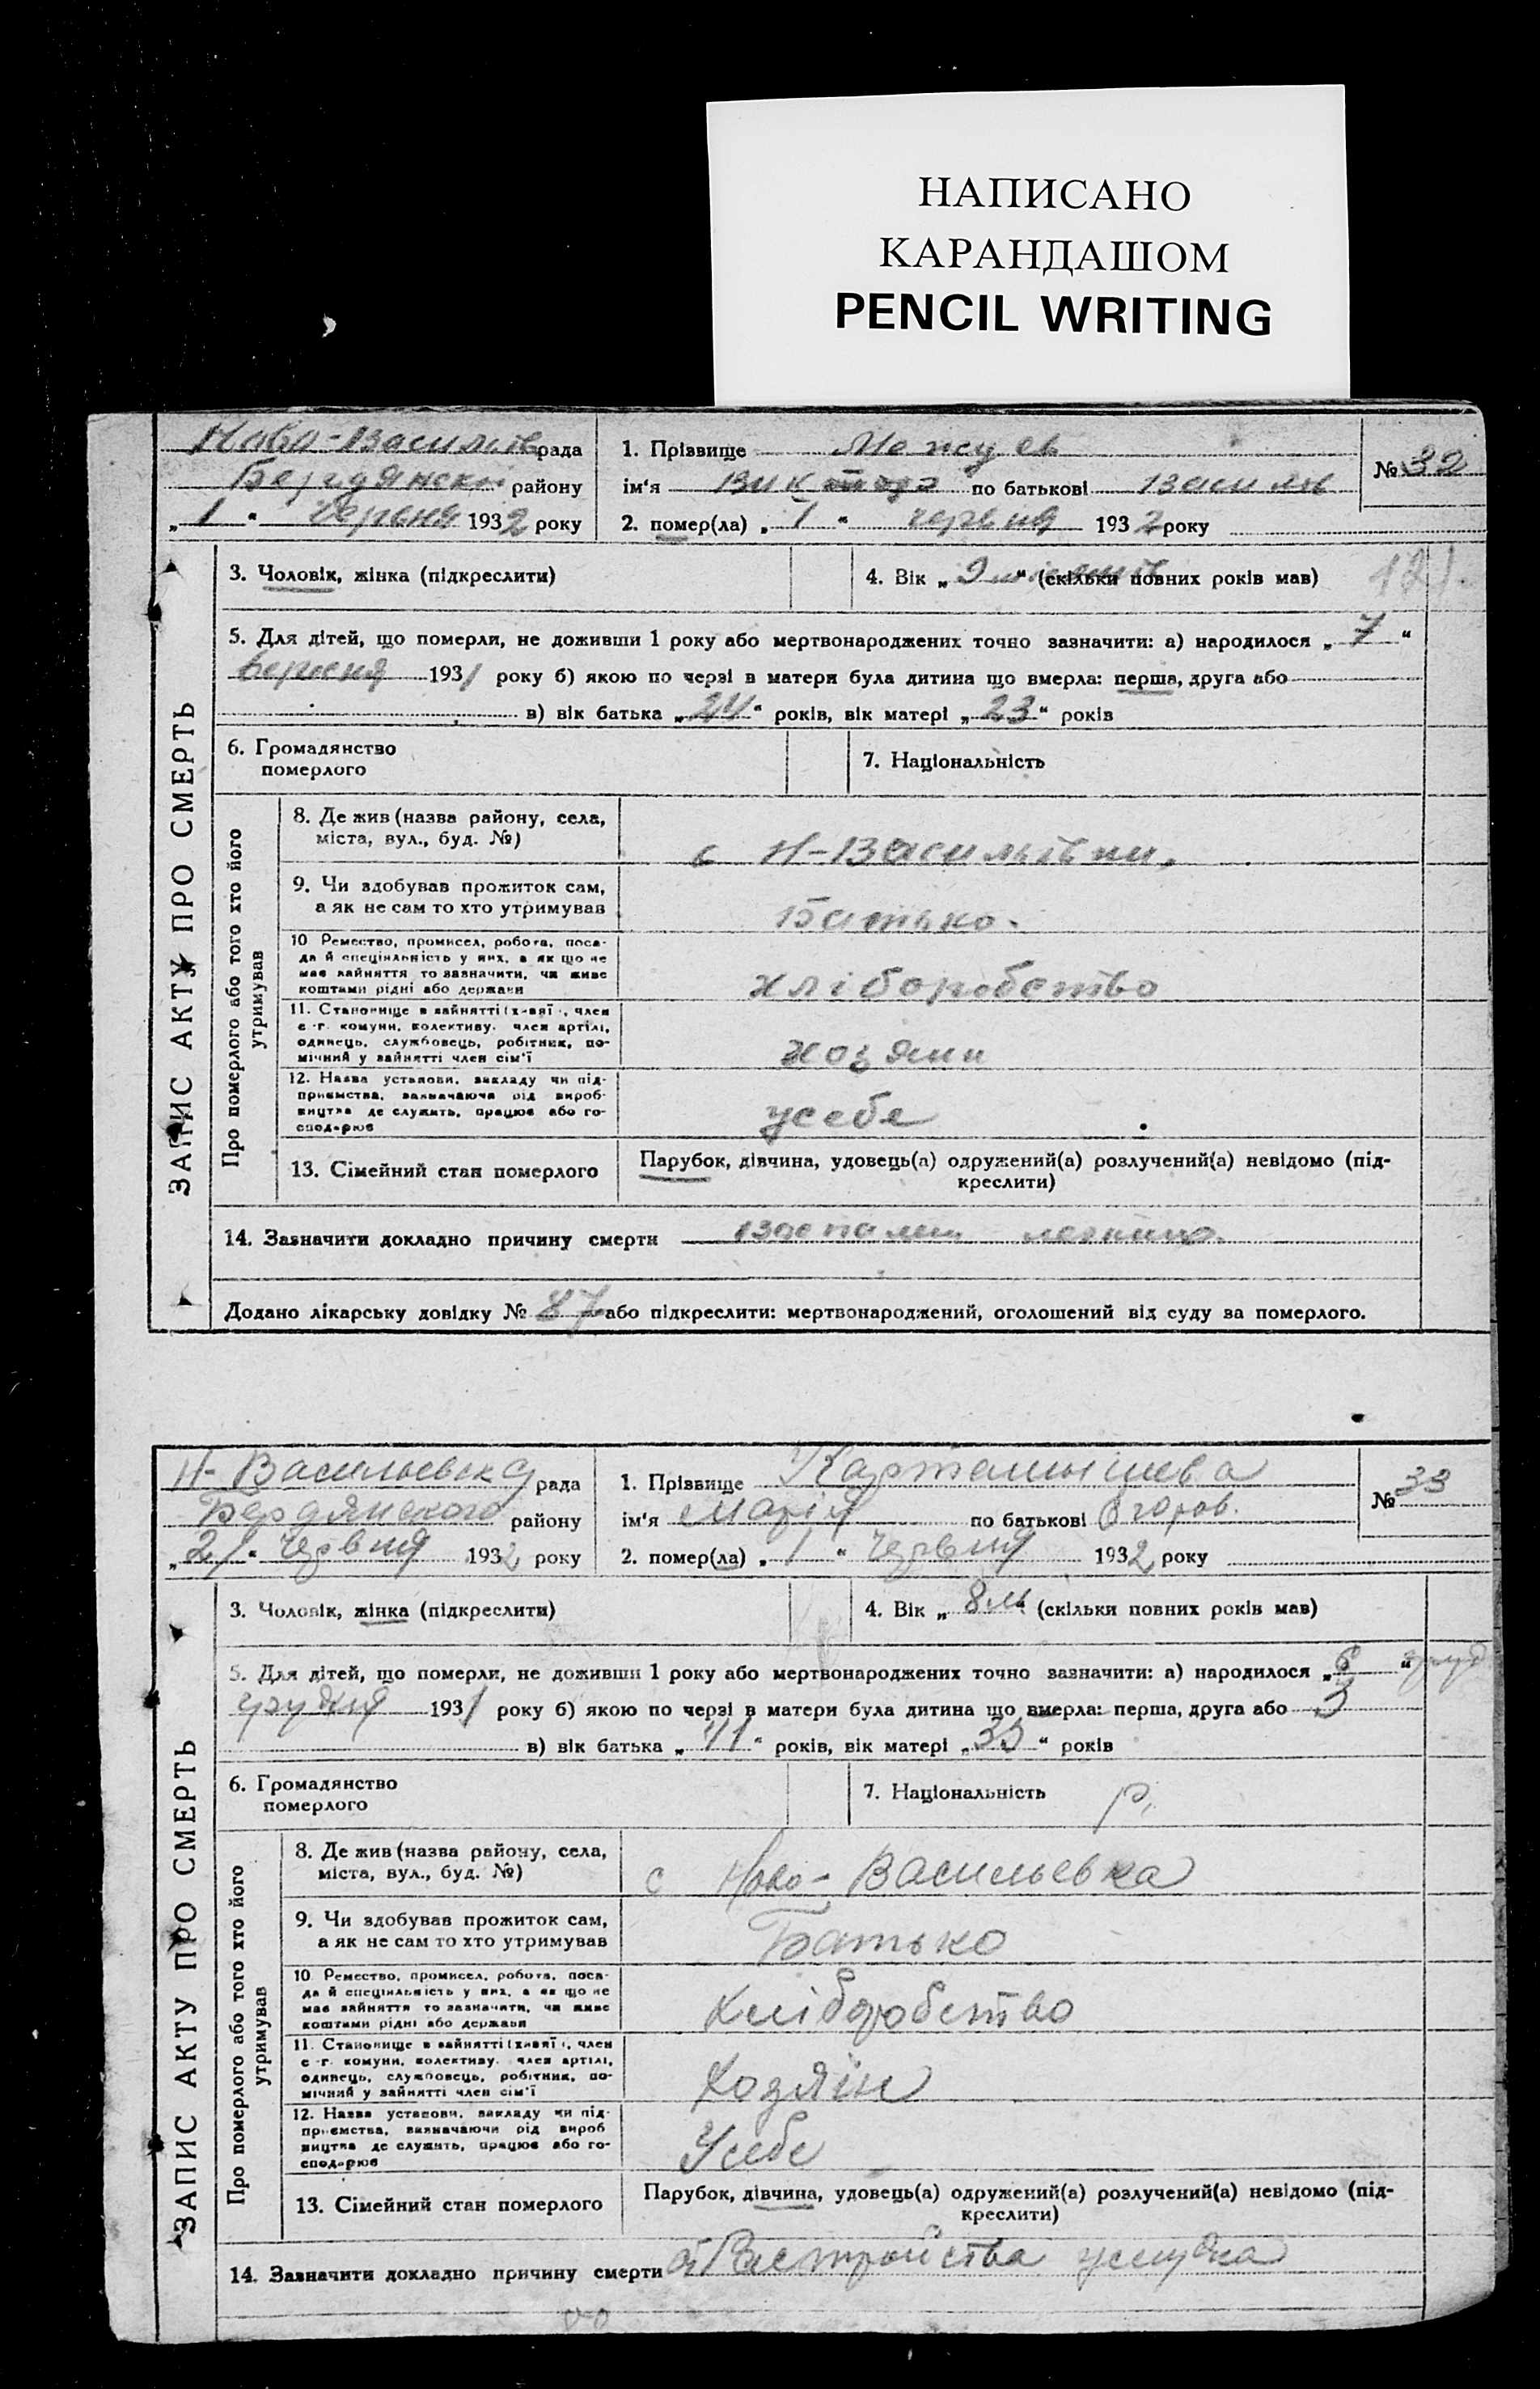 НАПИСАНО
КАРАНДАШОМ
PENCIL WRITING
Ново-Василів рада
Бердянськ району
„ 1 “ червня 1932 року
1. Прізвище Межуев
ім'я Виктор по батькові Василів
2. помер(ла) „ 1 “ червня 1932 року
№ 32
3. Чоловік, жінка (підкреслити)
4. Вік „ 9 “ (скільки повних років мав)
5. Для дітей, що померли, не доживши 1 року або мертвонароджених точно зазначити: а) народилося „ 7 “
вересня 1931 року б) якою по черзі в матери була дитина що вмерла: перша, друга або
в) вік батька „ 24 “ років, вік матері „ 23 “ років
6. Громадянство
померлого
7. Національність
ЗАПИС АКТУ ПРО СМЕРТЬ
Про померлого або того хто його
утримував
8. Де жив (назва району, села,
міста, вул., буд. №)
с Н-Васильівки.
9. Чи здобував прожиток сам,
а як не сам то хто утримував
Батько.
10 Ремество, промисел, робота, поса-
да й спеціяльність у них, а як що не
має зайняття то зазначити, чи живе
коштами рідні або держави
хліборобство
11. Становище в зайнятті (х-заї), член
с.-г. комуни, колективу, член артілі,
одинець, службовець, робітник, по-
мічний у зайнятті член сім'ї
хозяин
12. Назва установи, закладу чи під-
приємства, зазначаючи рід вироб-
ництва де служить, працює або го-
сподарює
усебе
13. Сімейний стан померлого
Парубок, дівчина, удовець(а) одружений(а) розлучений(а) невідомо (під-
креслити)
14. Зазначити докладно причину смерти
Додано лікарську довідку № 87 або підкреслити: мертвонароджений, оголошений від суду за померлого.
Н-Васильевска рада
Бердянского району
„ 21 “ червня 1932 року
1. Прізвище Картамышева
ім'я Марія по батькові Єгоров.
2. помер(ла) „ 1 “ червня 1932 року
№ 33
3. Чоловік, жінка (підкреслити)
4. Вік „ 8 м “ (скільки повних років мав)
5. Для дітей, що померли, не доживши 1 року або мертвонароджених точно зазначити: а) народилося „ 6 “ груд
грудня 1931 року б) якою по черзі в матери була дитина що вмерла: перша, друга або 3
в) вік батька „ 41 “ років, вік матері „ “ років
6. Громадянство
померлого
7. Національність р.
ЗАПИС АКТУ ПРО СМЕРТЬ
Про померлого або того хто його
утримував
8. Де жив (назва району, села,
міста, вул., буд. №)
с Ново-Васильевка
9. Чи здобував прожиток сам,
а як не сам то хто утримував
Батько
10 Ремество, промисел, робота, поса-
да й спеціяльність у них, а як що не
має зайняття то зазначити, чи живе
коштами рідні або держави
Хліборобство
11. Становище в зайнятті (х-заї), член
с.-г. комуни, колективу, член артілі,
одинець, службовець, робітник, по-
мічний у зайнятті член сім'ї
Хозяін
12. Назва установи, закладу чи під-
приємства, зазначаючи рід вироб
ництва де служить, працює або го-
сподарює
Усебе
13. Сімейний стан померлого
Парубок, дівчина, удовець(а) одружений(а) розлучений(а) невідомо (під-
креслити)
14. Зазначити докладно причину смерти от Растройства желудка